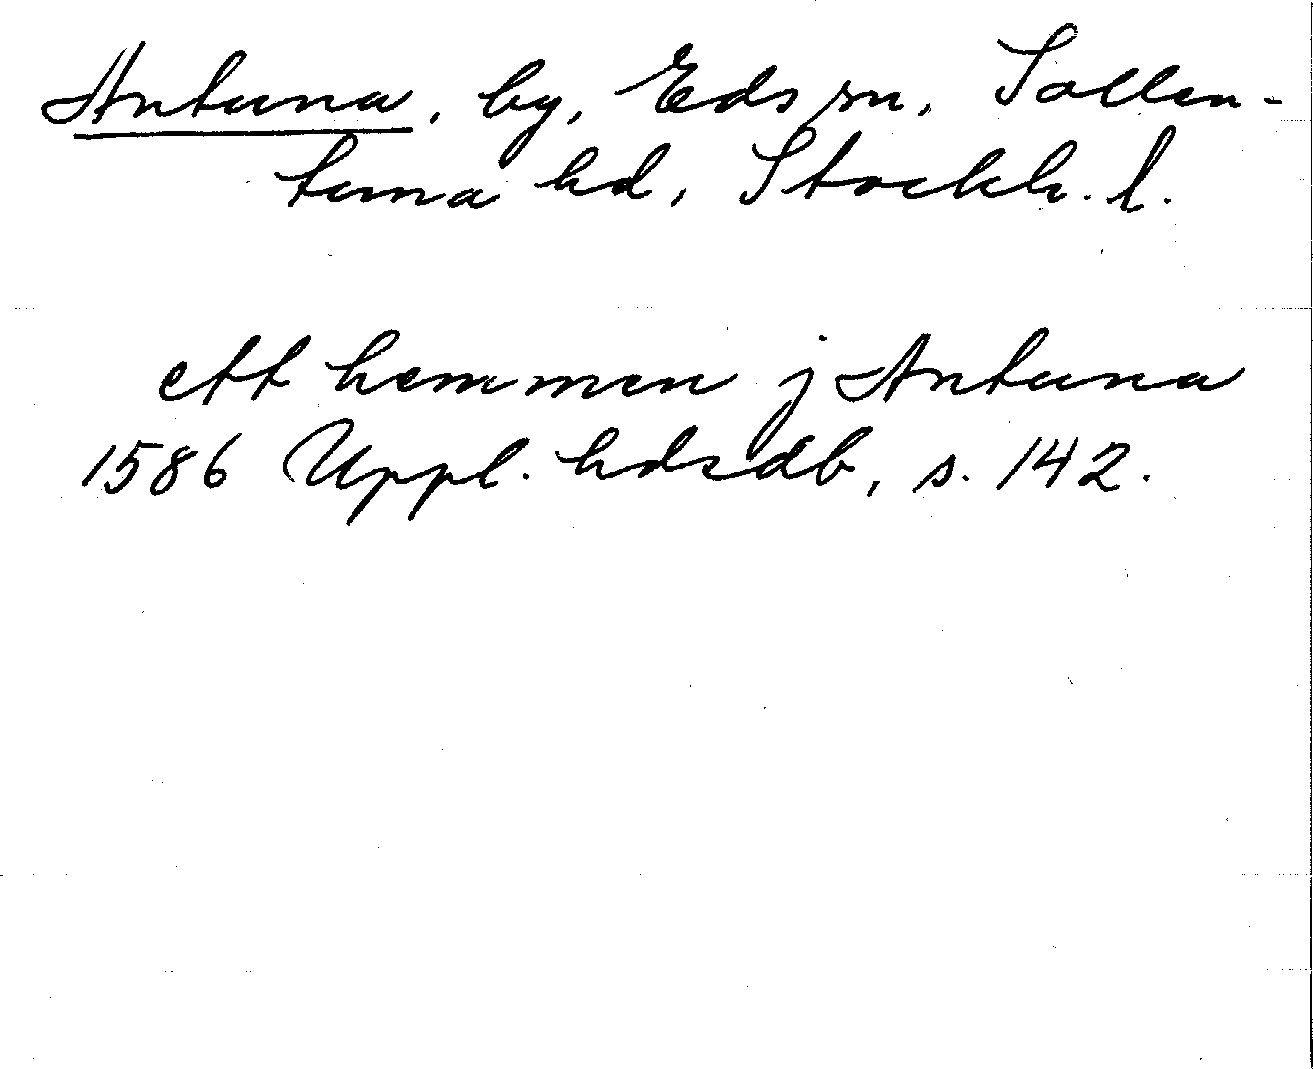 Antuna, by, Eds sn, Sollen-
tuna hd, Stockh. l.
ett hemman j Antuna
1586 Uppl. hdsdb, s. 142.